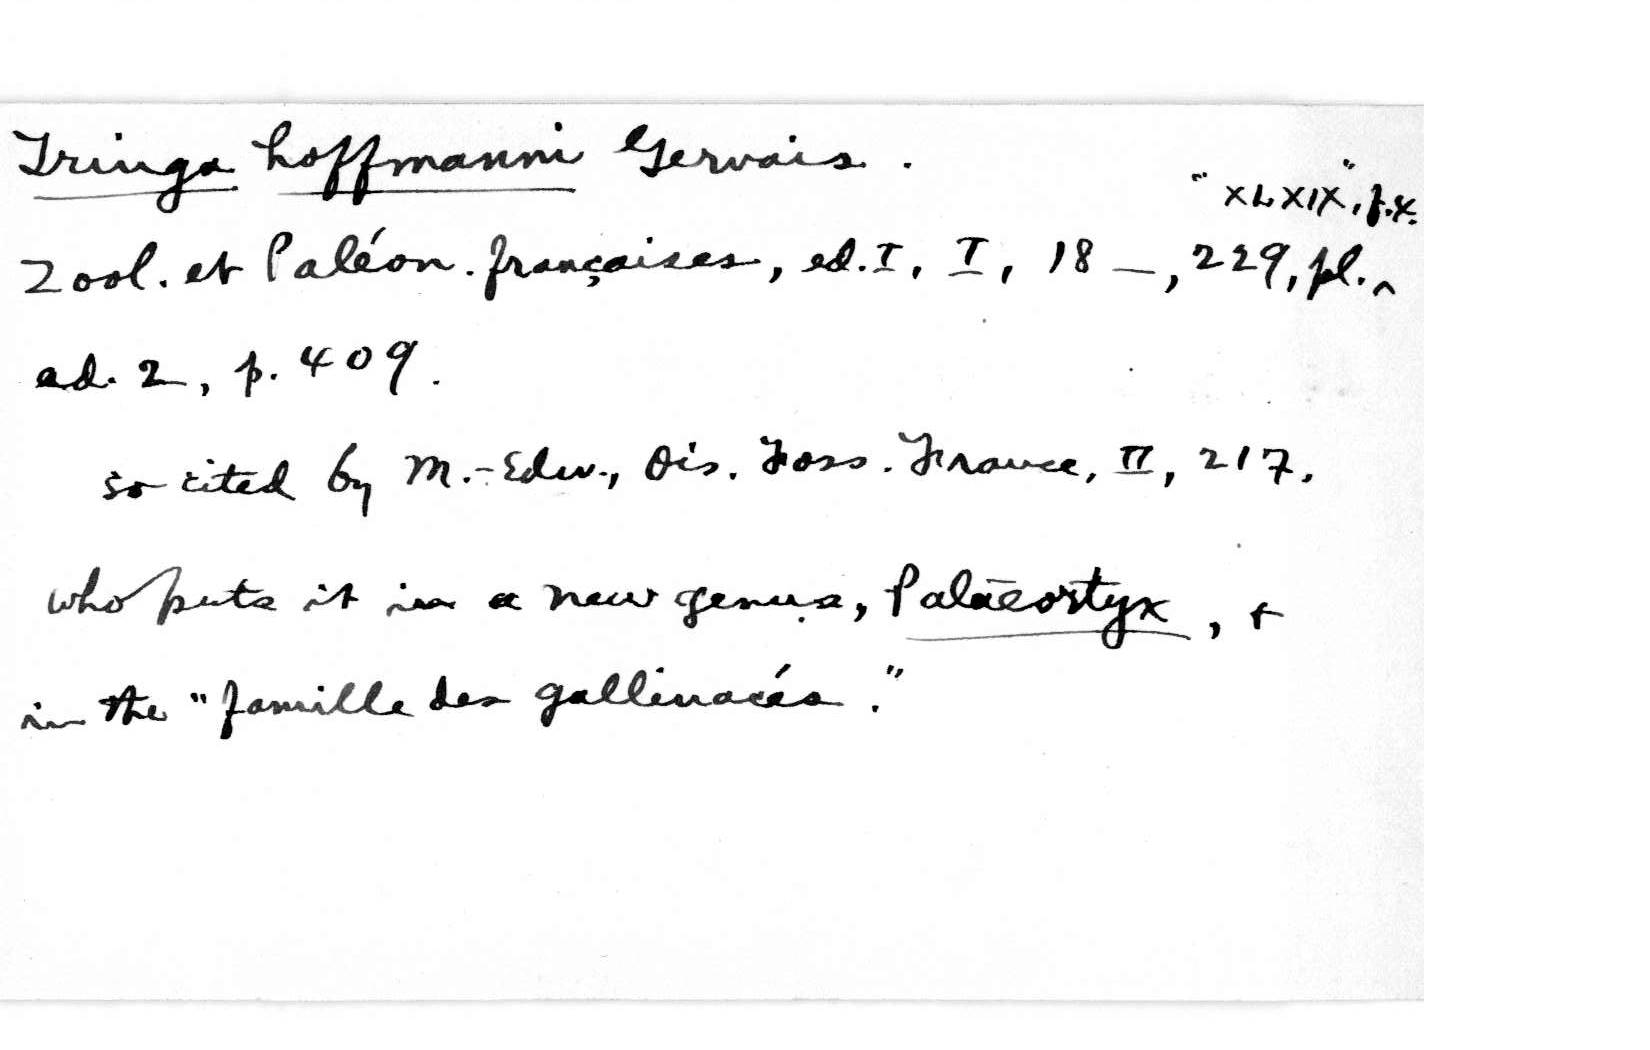 Tringa hoffmanni Gervais.
"XLXIX", f.4.
Zool. et Paléon. françaises, ed. I, I, 18—, 229, pl. ^
ed. 2, p. 409.
so cited by M.-Edw., Ois. Foss. France, II, 217,
who puts it in a new genus, Palaeortyx, +
in the "famille des gallinacés."